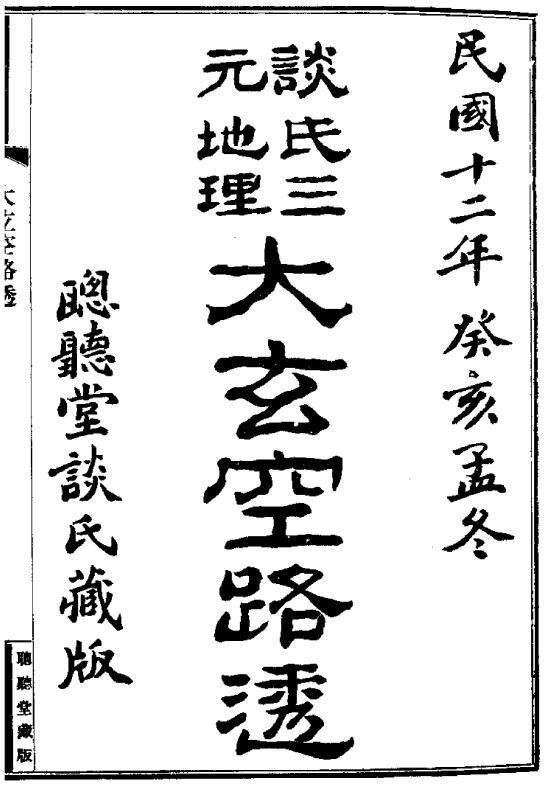 民國十二年癸亥孟冬
談氏三
元地理
大玄空路透
聰聽堂談氏藏版
大玄空路透
聰聽堂藏版